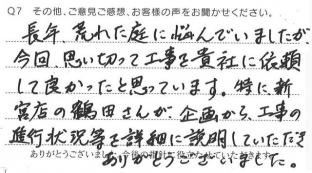 Q7 その他、ご意見ご感想、お客様の声をお聞かせください。
長年、荒れた庭に悩んでいましたが、
今回、思い切って工事を貴社に依頼
して良かったと思っています。特に新
宮店の鶴田さんが企画から、工事の
進行状況等を詳細に説明していただき
ありがとうございました。今後の指針に役立たせていただきます。
ありがとうございました。